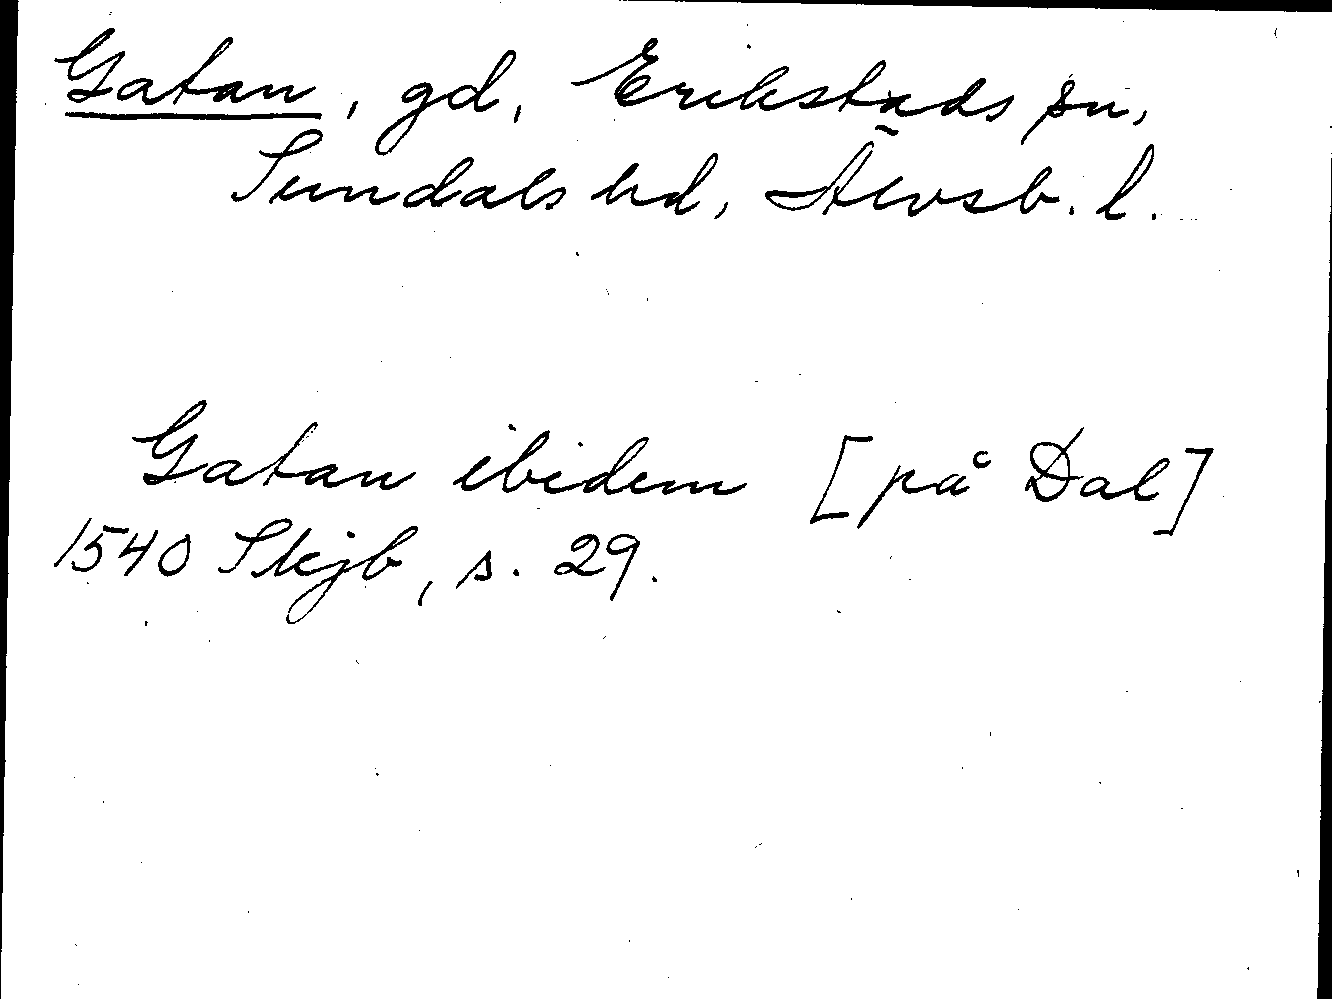 Gatan, gd, Erikstads sn,
Sundals hd, Älvsb. l.
Gatan ibidem [på Dal]
1540 Skjb, s. 29.